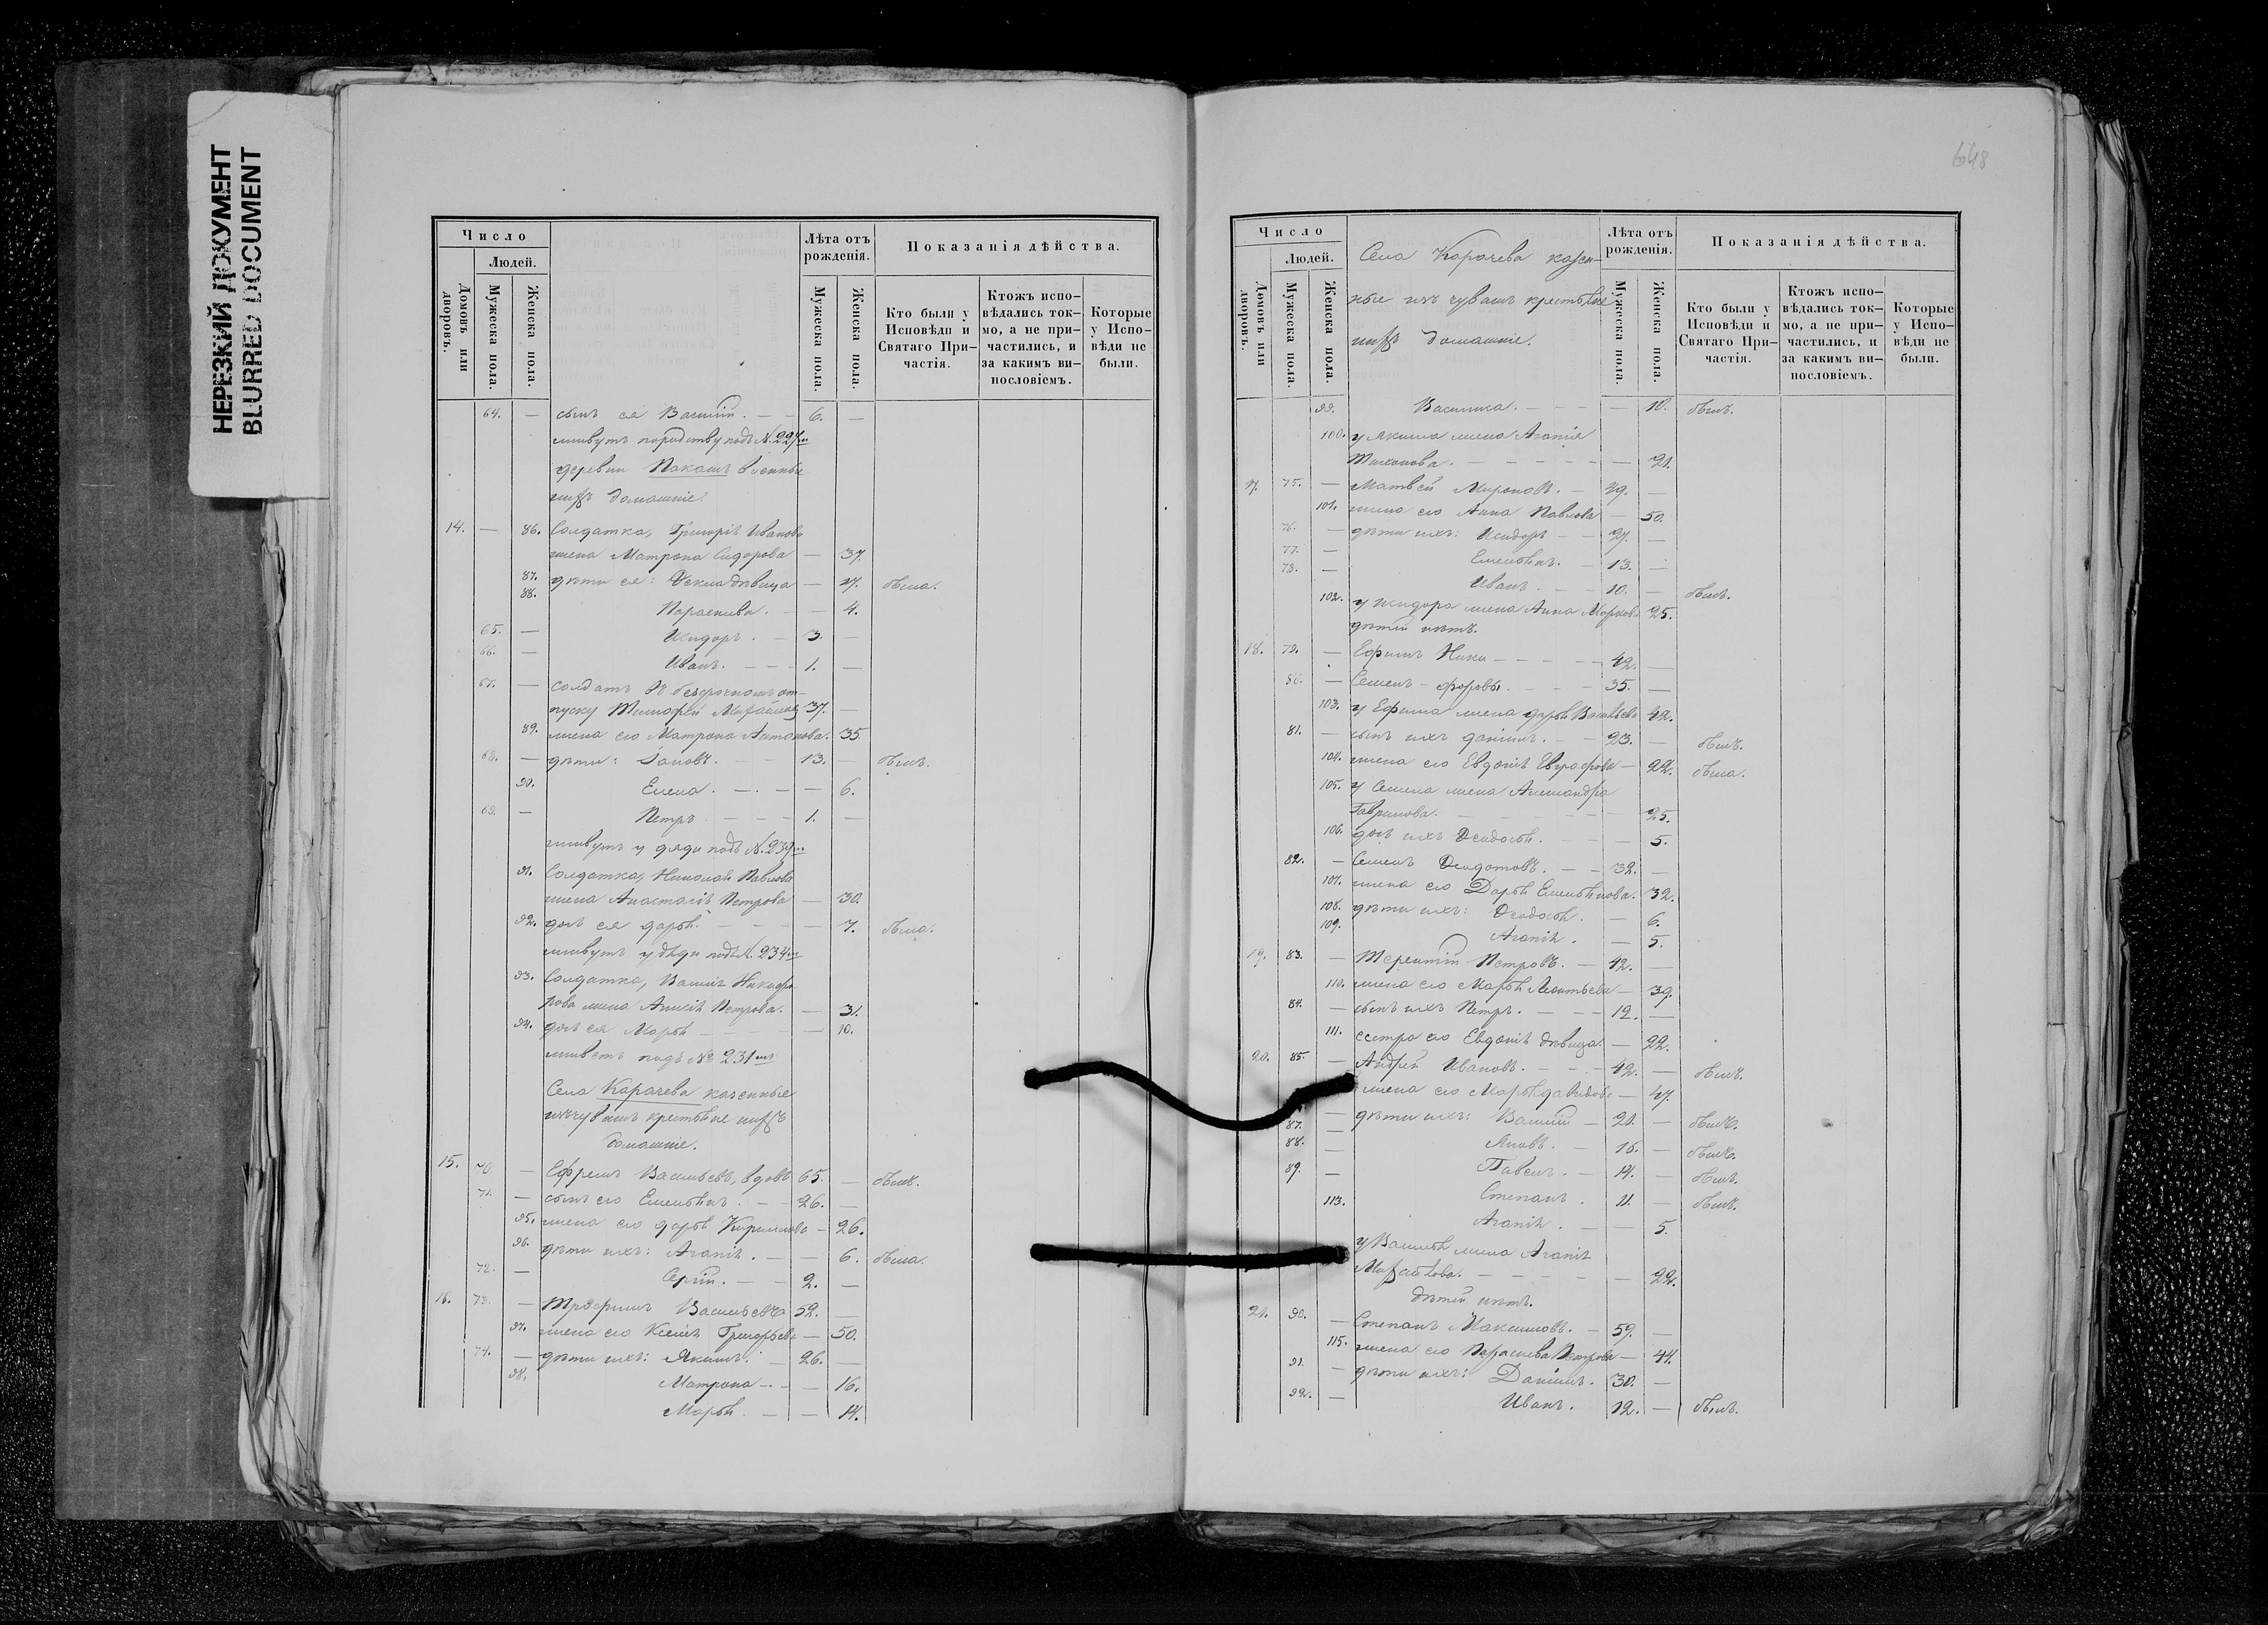 НЕРЕЗКИЙ ДОКУМЕНТ
BLURRED DOCUMENT
Число
Людей.
Домовъ или дворовъ.
Мужеска пола.
Женска пола.
Лѣта отъ рожденія.
Мужеска пола.
Женска пола.
Показанія дѣйства.
Кто были у Исповѣди и Святаго Причастія.
Ктожъ исповѣдались токмо, а не причастились, и за какимъ винословіемъ.
Которые у Исповѣди не были.
64. — сынъ ея Василій. — — 6. —
живутъ по родству подъ №. 227
деревни Пакашъ военные
ихъ домашніе.
14. — 86. Солдатка, Григорія Иванова
жена Матрона Сидорова — 37.
87. дѣти ея: Ѳекла дѣвица — 7. была.
88. Параскева. — — 4.
65. — Исидоръ. — 3. —
66. — Иванъ. — — — 1. —
67. — солдатъ въ безсрочномъ от-
пуску Тимофей 37. —
89. жена его Матрона Антонова. 35
68. — дѣти: Іаковъ. — — 13. — былъ.
90. Елена. — — — — 6.
69. — Петръ — — — 1. —
живутъ у дяди подъ №. 239
91. Солдатка, Николая Павлова
жена Анастасія Петрова — 30.
92. дочь ея Дарья. — — — — 7. была.
живутъ у дѣди подъ №. 234
93. Солдатка,
жена Анисія Петрова. — 31.
94. дочь ея Марья — — — — 10.
живетъ подъ № 231
Села Карачева казенные
изъ чувашъ крестьяне ихъ
домашніе.
15. 70. — Ефремъ Васильевъ, вдовъ 65. — былъ.
71. — сынъ его Емельянъ. — — 26. —
95. жена его Дарья Кириллова — 26.
96. дѣти ихъ: Агапія. — — 6. была.
72. — Сергій. — — 2. —
16. 73. — Трофимъ Васильевъ 52. —
97. жена его Ксенія Григорьева — 50.
74. — дѣти ихъ: Якимъ. — 26. —
98. Матрона — — — 16.
Марья. — — 14.
648
Число
Людей.
Домовъ или дворовъ.
Мужеска пола.
Женска пола.
Села Карачева казен-
ные изъ чувашъ крестьяне
ихъ домашніе.
Лѣта отъ рожденія.
Мужеска пола.
Женска пола.
Показанія дѣйства.
Кто были у Исповѣди и Святаго Причастія.
Ктожъ исповѣдались токмо, а не причастились, и за какимъ винословіемъ.
Которые у Исповѣди не были.
99. Василиса. — — — — 10. былъ.
100. у Якима жена Агапія
Тихонова. — — — — — — 21.
75. — Матвей Мироновъ. — 49. —
101. жена его Анна Павлова — 50.
76. — дѣти ихъ: Исидоръ — — 27. —
77. — Емельянъ. — 13. —
78. — Иванъ. — — 10. — былъ.
102. у Исидора жена Анна Маркова 25.
дѣтей нѣтъ.
18. 79. — Ефимъ Ники — — — — 42. —
80. — Семенъ — форовы. — — — 35. —
103. у Ефима жена Дарья Васильева 42.
81. — сынъ ихъ Даніилъ. — — 23. — былъ.
104. жена его Евдокія — 22. была.
105. у Семена жена Александра
Гаврилова. — — — — — — 25.
106. дочь ихъ Ѳеодосія. — — — 5.
82. — Семенъ Ѳедотовъ. — — 32. —
107. жена его Дарья Емельянова. 32.
108. дѣти ихъ: Ѳеодосія. — 6.
109. Агапія. — 5.
19. 83. — Терентій Петровъ. — 42. —
110. жена его Марья Леонтьева — 39.
84. — сынъ ихъ Петръ. — — — 12. —
111. сестра его Евдокія дѣвица. — 22.
20. 85. — Андрей Ивановъ. — — — 42. — былъ.
жена его Марья Давидова — 47.
— дѣти ихъ: Василій — 21. — былъ.
87. —
88. — Яковъ. — 16. — былъ.
89. — Павелъ. — 14. — былъ.
113. Степанъ. 11. — былъ.
Агапія. — — 5.
у Василія жена Агапія
— — — — — — 22.
дѣтей нѣтъ.
21. 90. — Степанъ Максимовъ. — 59. —
115. жена его Параскева Петрова — 44.
91. — дѣти ихъ: Даніилъ. 30. —
92. — Иванъ. 12. — былъ.